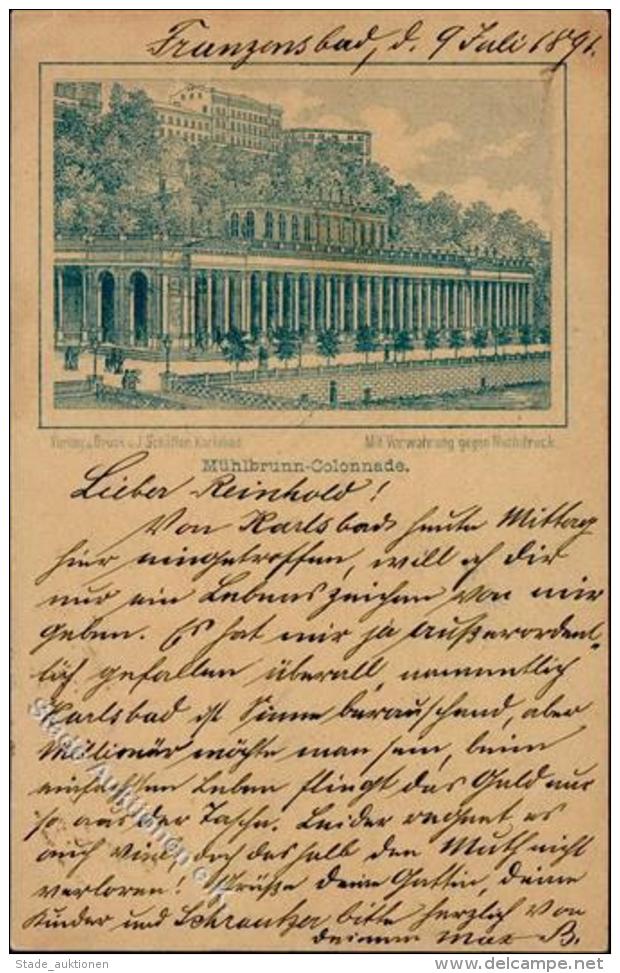 Franzensbad, d. 9 Juli 1891.
Verlag u. Druck v. J. Schäffler Karlsbad
Mit Verwahrung gegen Nachdruck.
Mühlbrunn-Colonnade.
Lieber Reinhold!
Von Karlsbad heute Mittag
hier eingetroffen, will ich Dir
nur ein Lebenszeichen von mir
geben. Es hat mir ja außerordent-
lich gefallen überall, namentlich
Karlsbad ist Sinne berauschend, aber
Millionär möchte man sein, beim
einfachsten Leben fliegt das Geld nur
so aus der Tasche. Leider regnet es
auch viel, doch deshalb den Muth nicht
verloren! Grüße deine Gattin, deine
Kinder und bitte herzlich von
deinem Max B.
Stade Auktionen
Stade_auktionen